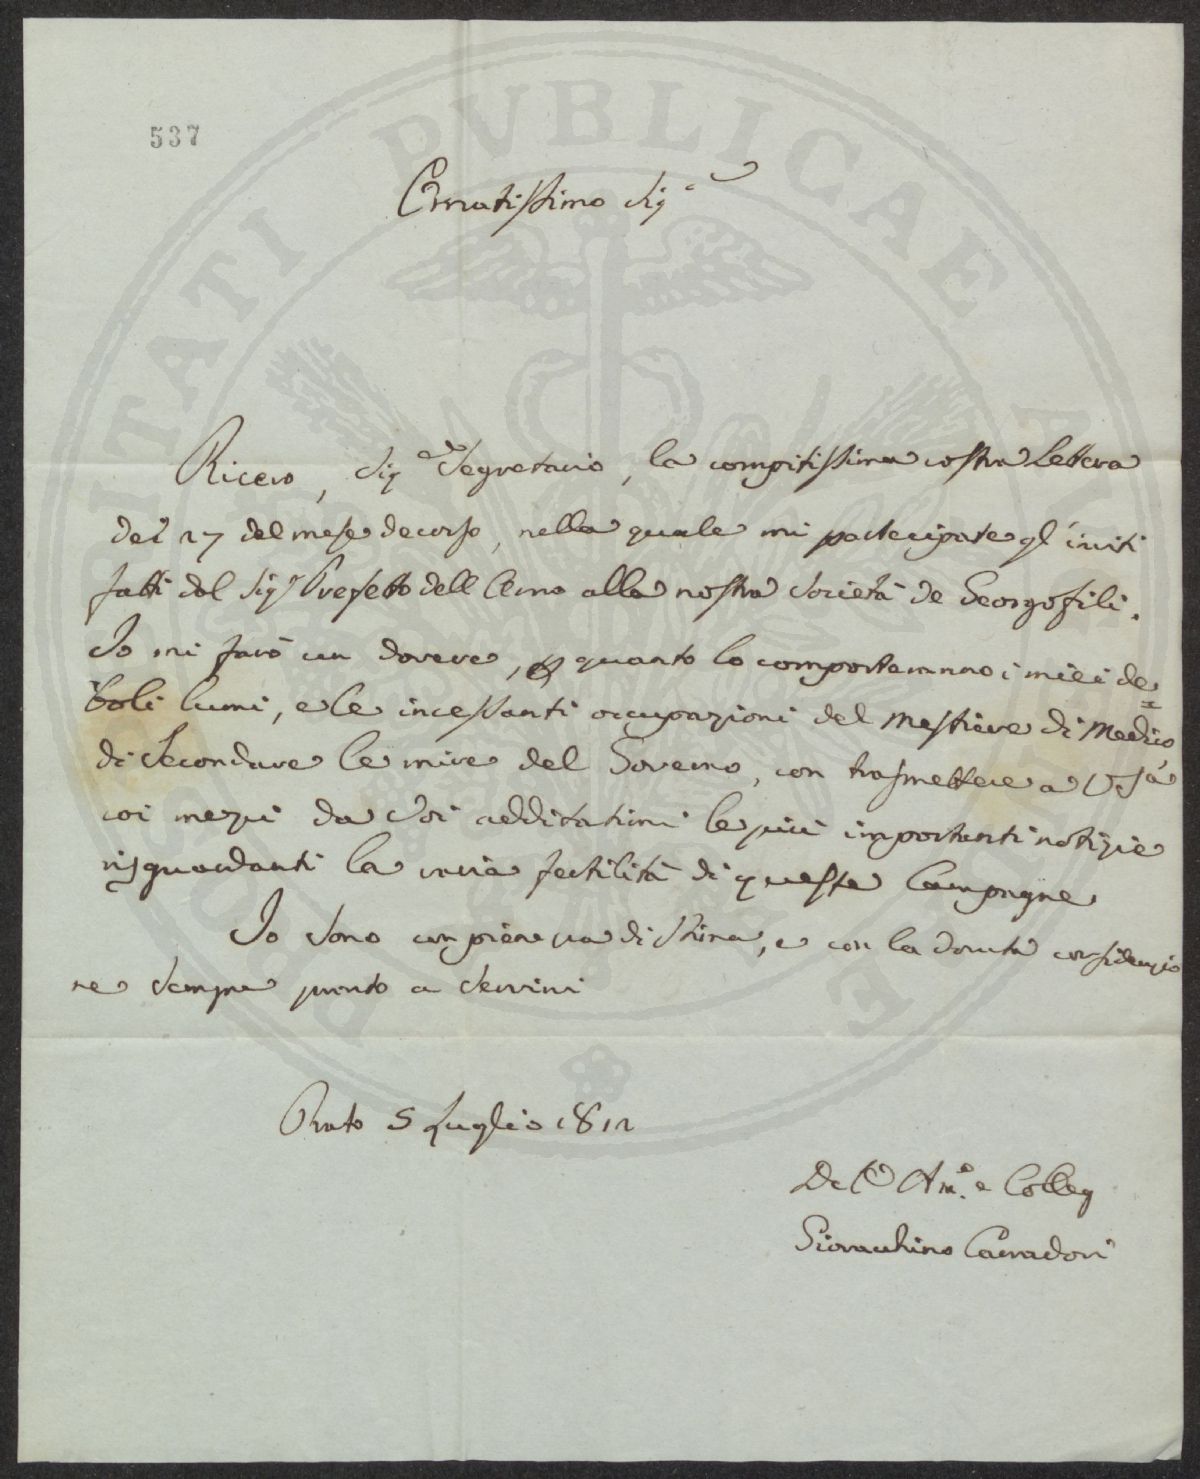 537
Ornatissimo Sig.e
Ricevo, Sig. Segretario, la compitissima vostra Lettera
dei 27 del mese decorso, nella quale mi partecipate gl'inviti
fatti dal Sig.r Prefetto dell'Arno alla nostra Società de Georgofili.
Io mi farò un dovere, quanto lo comporteranno i miei de=
boli lumi, e le incessanti occupazioni del mestiere di Medico
di Secondare le mire del Governo, con trasmettere a
coi mezzi da Voi additatimi le più importanti notizie
risguardanti la varia fertilità di queste Campagne
Io sono con pienezza di Stima, e con la dovuta considerazio
ne Sempre pronto a Servirvi
Prato 5 Luglio 1812
Di V. Am.o e Colleg
Giovacchino Carradori
PROSPERITATI PVBLICAE AVGENDAE